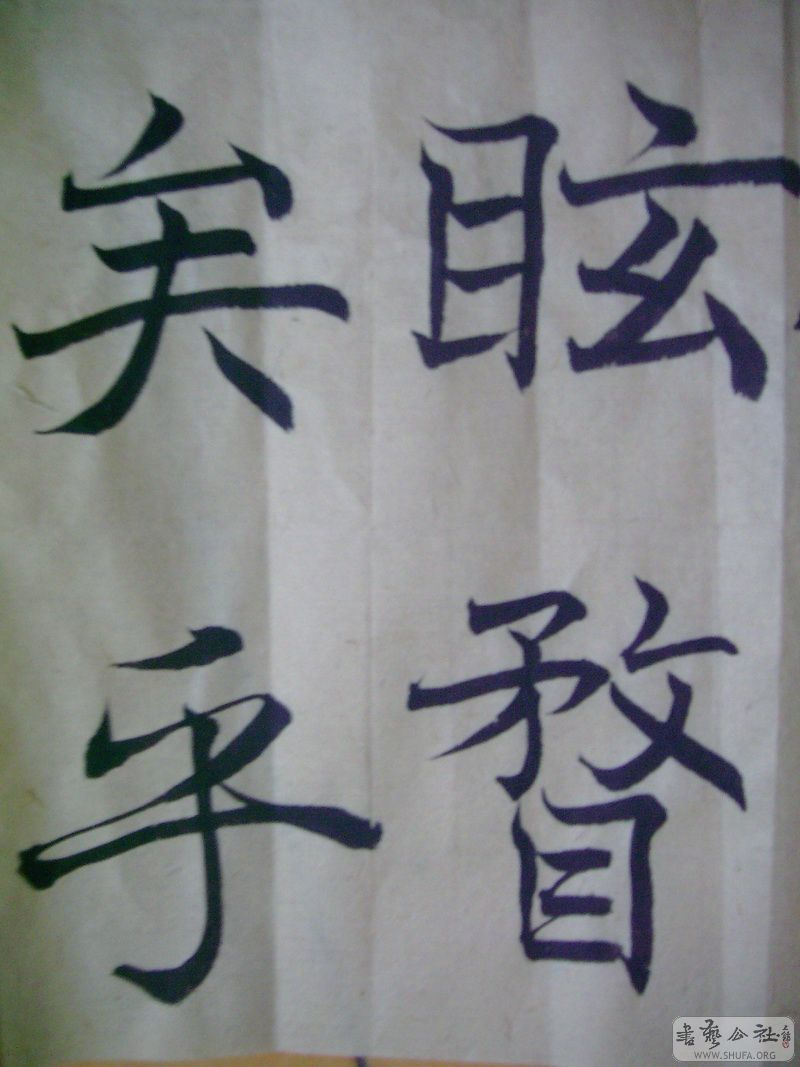 眩瞀
矣乎
書藝公社
WWW.SHUFA.ORG